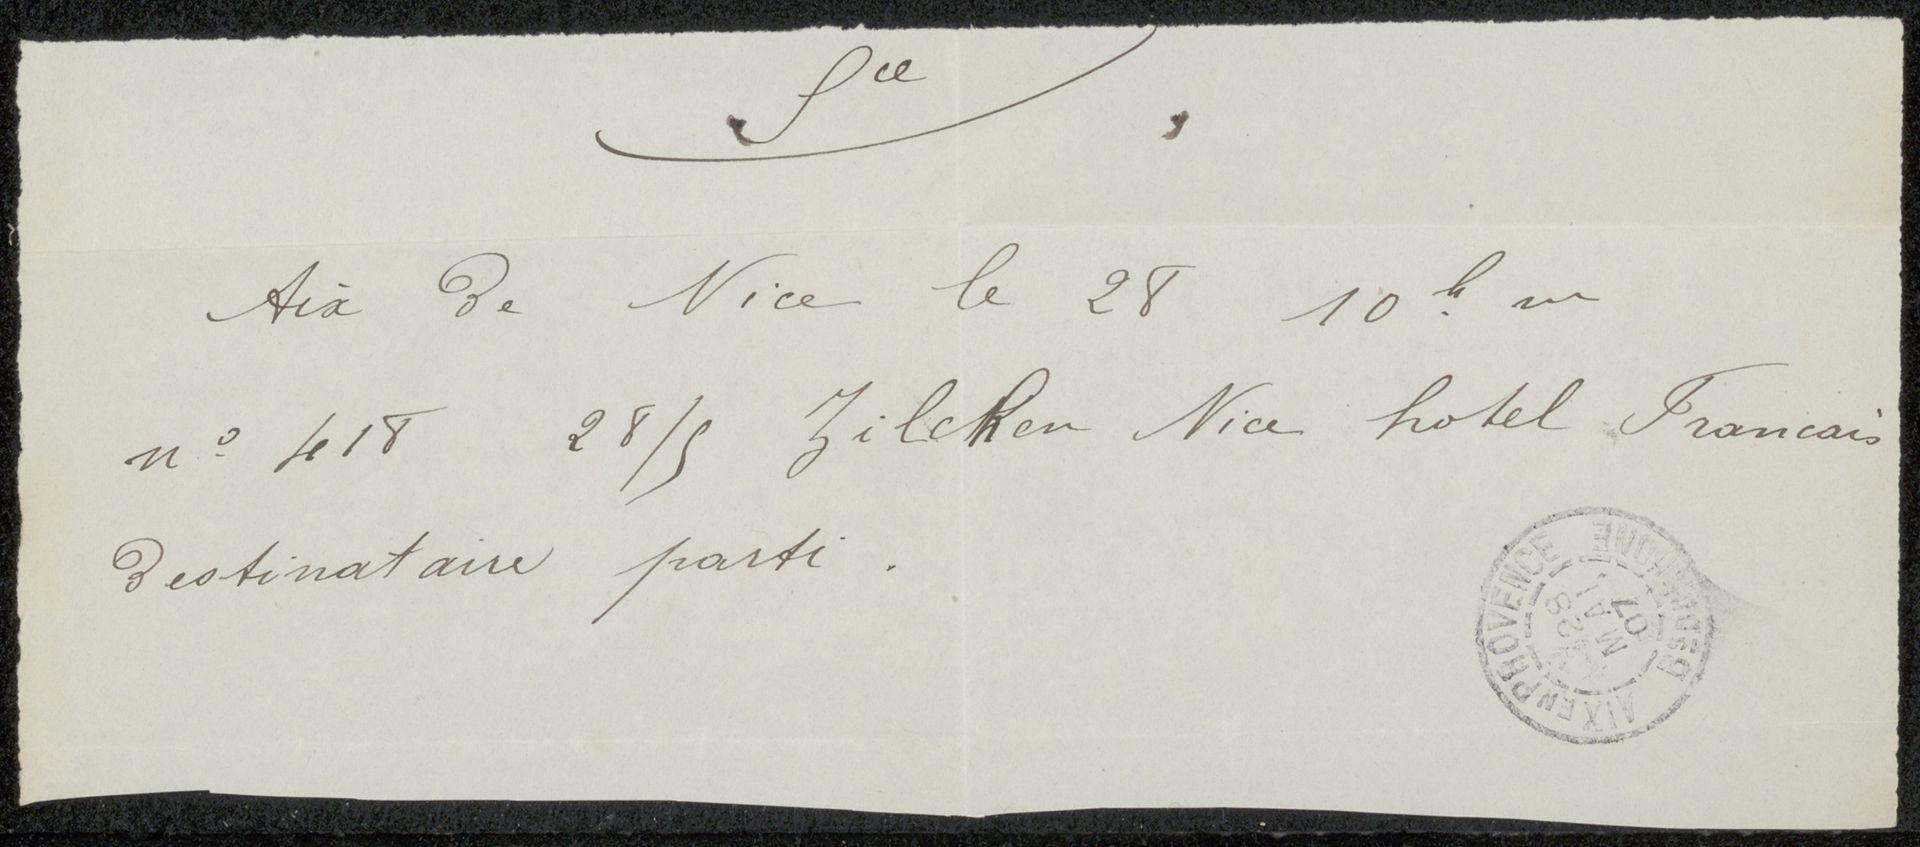 Sce
Aix de Nice le 28 10 h. m
no 418 28/5 Zilcken Nice hotel Francais
Destinataire parti.
AIX EN PROVENCE
BES DU RHONE
28
MAI
07